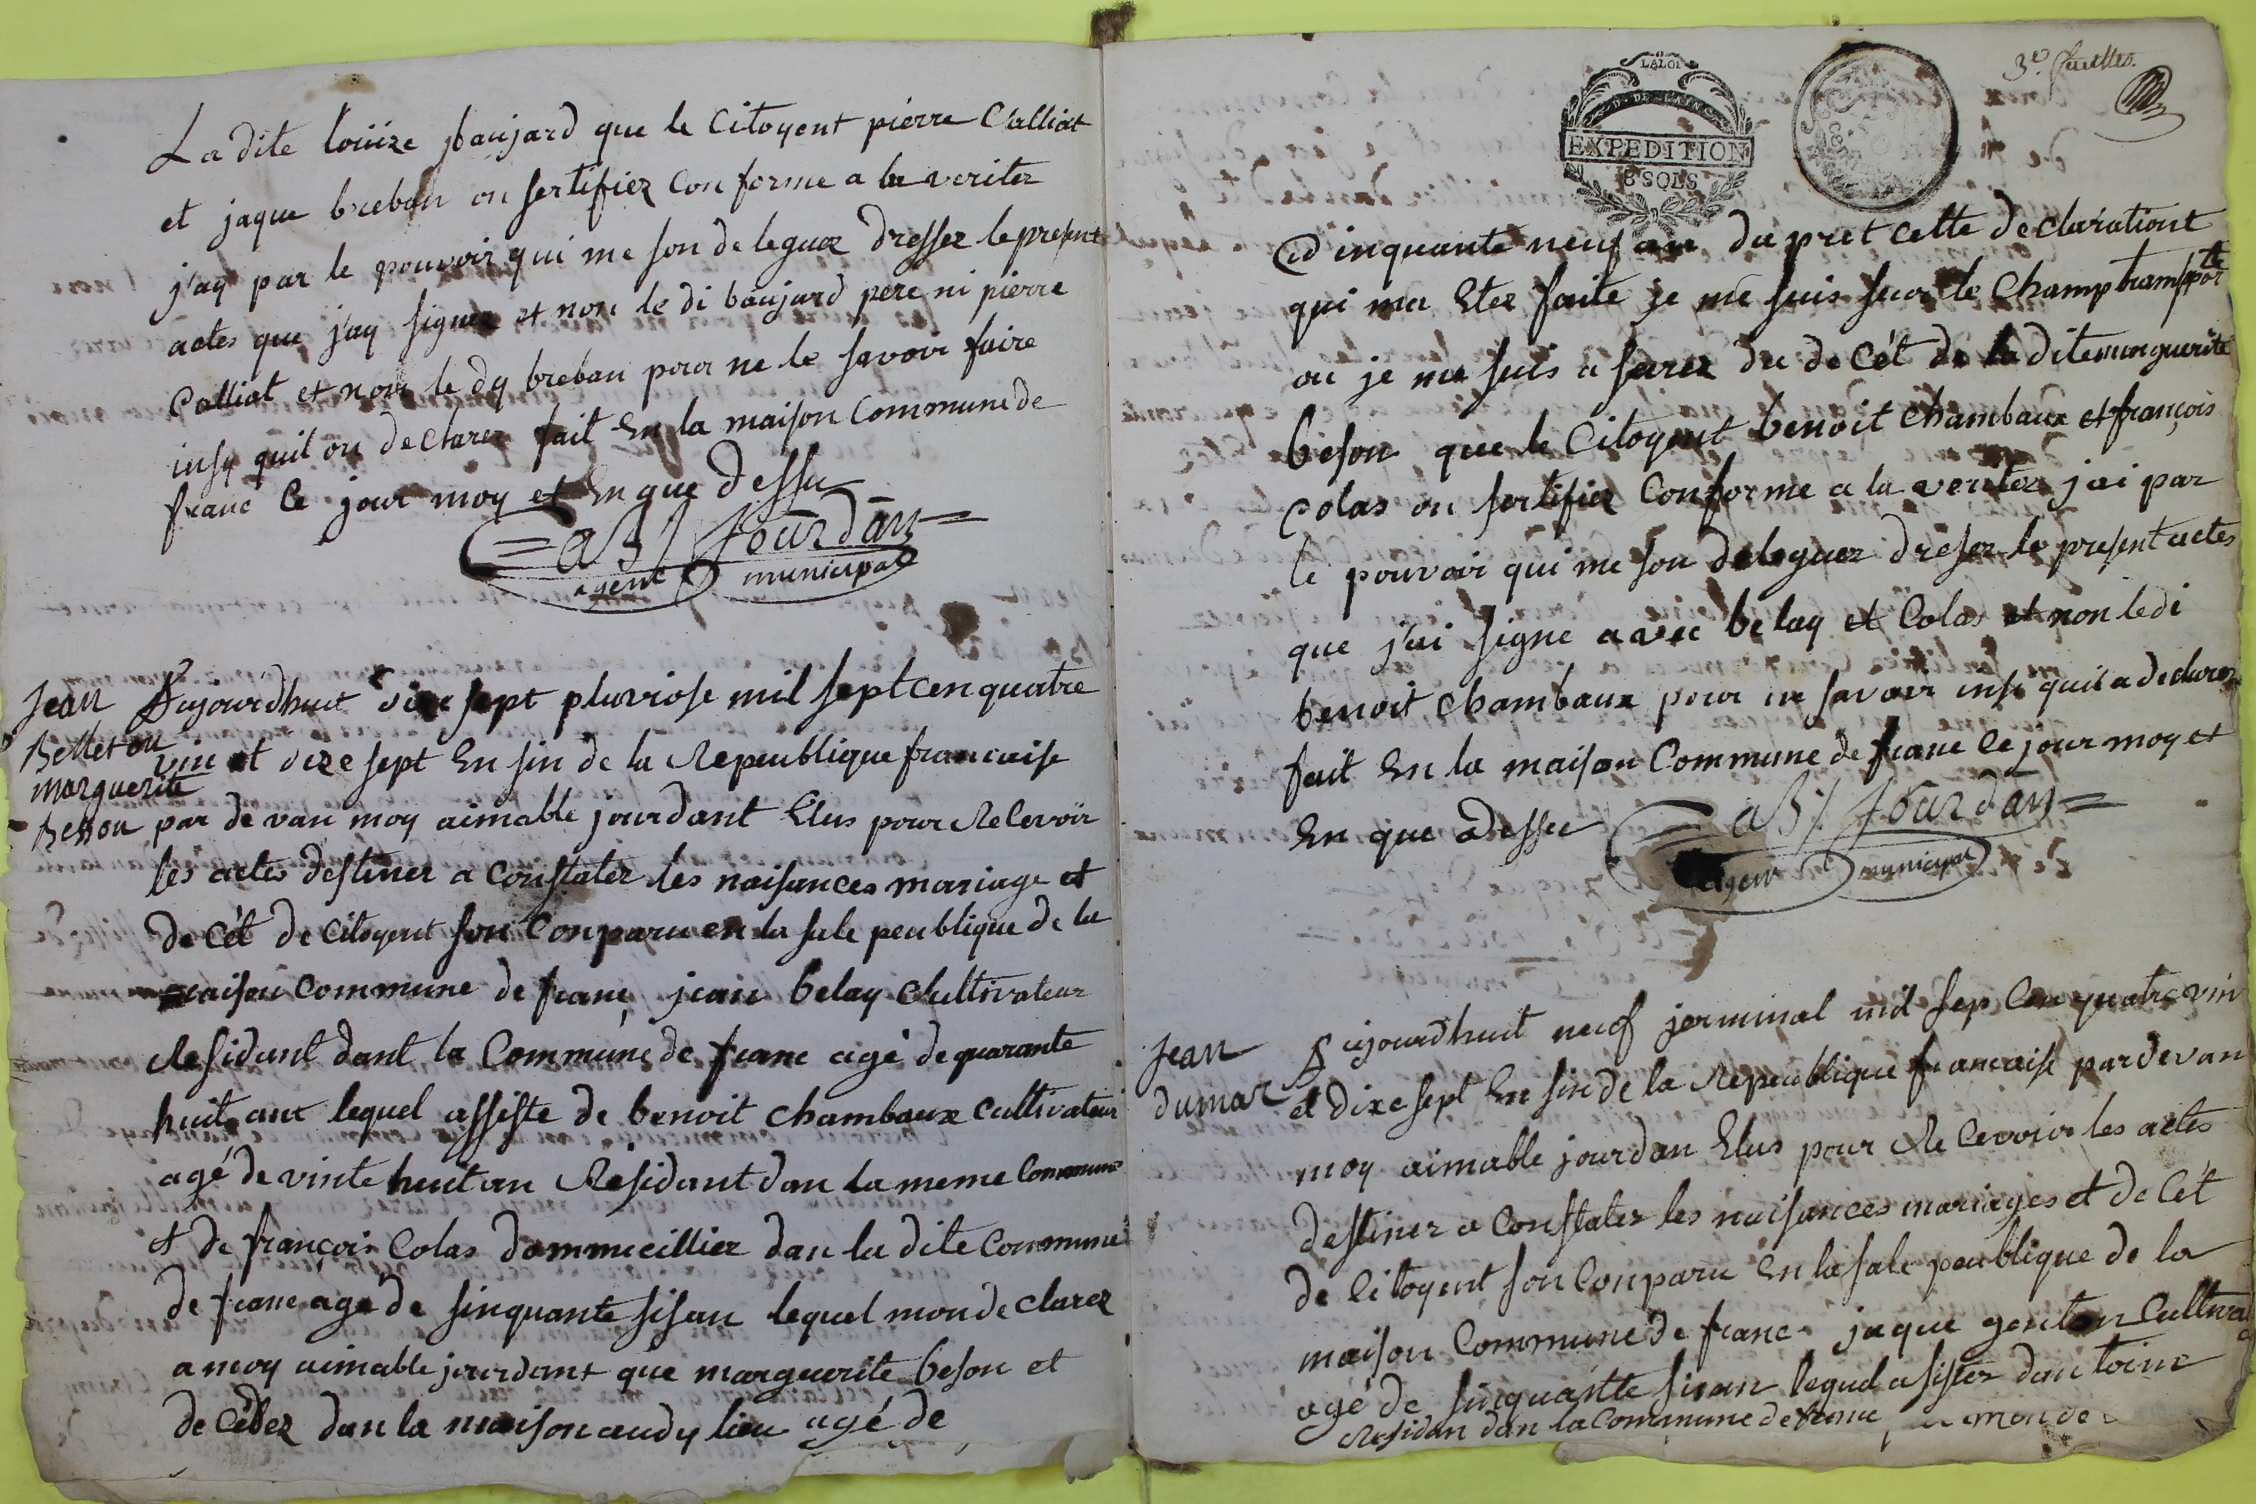 La dite Louize baujard que le Citoyent pierre Calliat
et jaque breban on sertifiez Conforme a la veritez
j'ay par le pouvoir qui me son deleguez dressez le present
actes que j'ay signez et non le di baujard pere ni pierre
Calliat et non le dy breban pour ne le savoir faire
insy quil on declarez fait En la maison Commune de
franc le jour moy et En que dessu
AB/ Jourdan
agent municipal
Jean
Belley ou
marguerite
Besson
Aujourdhuit dixe sept pluviose mil sept cen quatre
vin et dixe sept En sin de la Republique francaise
par devan moy aimable jourdant Elus pour Recevoir
les actes destiner a Constater les naisances mariage et
de Cét de Citoyent son Conparu en la sale peublique de la
maison Commune de franc jean belay Cultivateur
Residant dant la Commune de franc agé de quarante
huit ant lequel assiste de benoit Chambaux Cultivateur
agé de vinte huit an Residant dan la meme Commune
et de françois Colas dommicillier dan la dite Commune
de franc age de sinquante sisan lequel mon declarez
a moy aimable jourdant que marguerite beson et
de Cédez dan la maison audy lieu agé de
LA LOI
D. DE L'AIN
EXPEDITION
8 SOLS
3e. feuilles.
Cinquante neuf an du pret cette declarationt
qui ma Etez faite je me suis sur le Champ transporte
ou je me suis a surez du de Cét de la dite marguerite
beson que le Citoyent benoit Chambaux et françois
Colas on sertifiez Conforme a la veritez j'ai par
le pouvoir qui me son deleguez dresez le present actes
que j'ai signe avec belay et Colas et non le di
benoit Chambaux pour ne savoir insi quil a declarez
fait En la maison Commune de franc le jour moy et
En que dessu
AB/ Jourdan
agent municipal
Jean
dumar
Aujourdhuit neuf jerminal mil sep Cen quatre vin
et dixe sept En sin de la Republique francaise par devan
moy aimable jourdan Elus pour Recevoir les actes
destiner a Constater les naisances mariages et de Cét
de Citoyent son Conparu En la sale peublique de la
maison Commune de franc jaque genton Cultiva
agé de sinquante sisan lequel a sister dan toine
Residan dan la Commune de franc